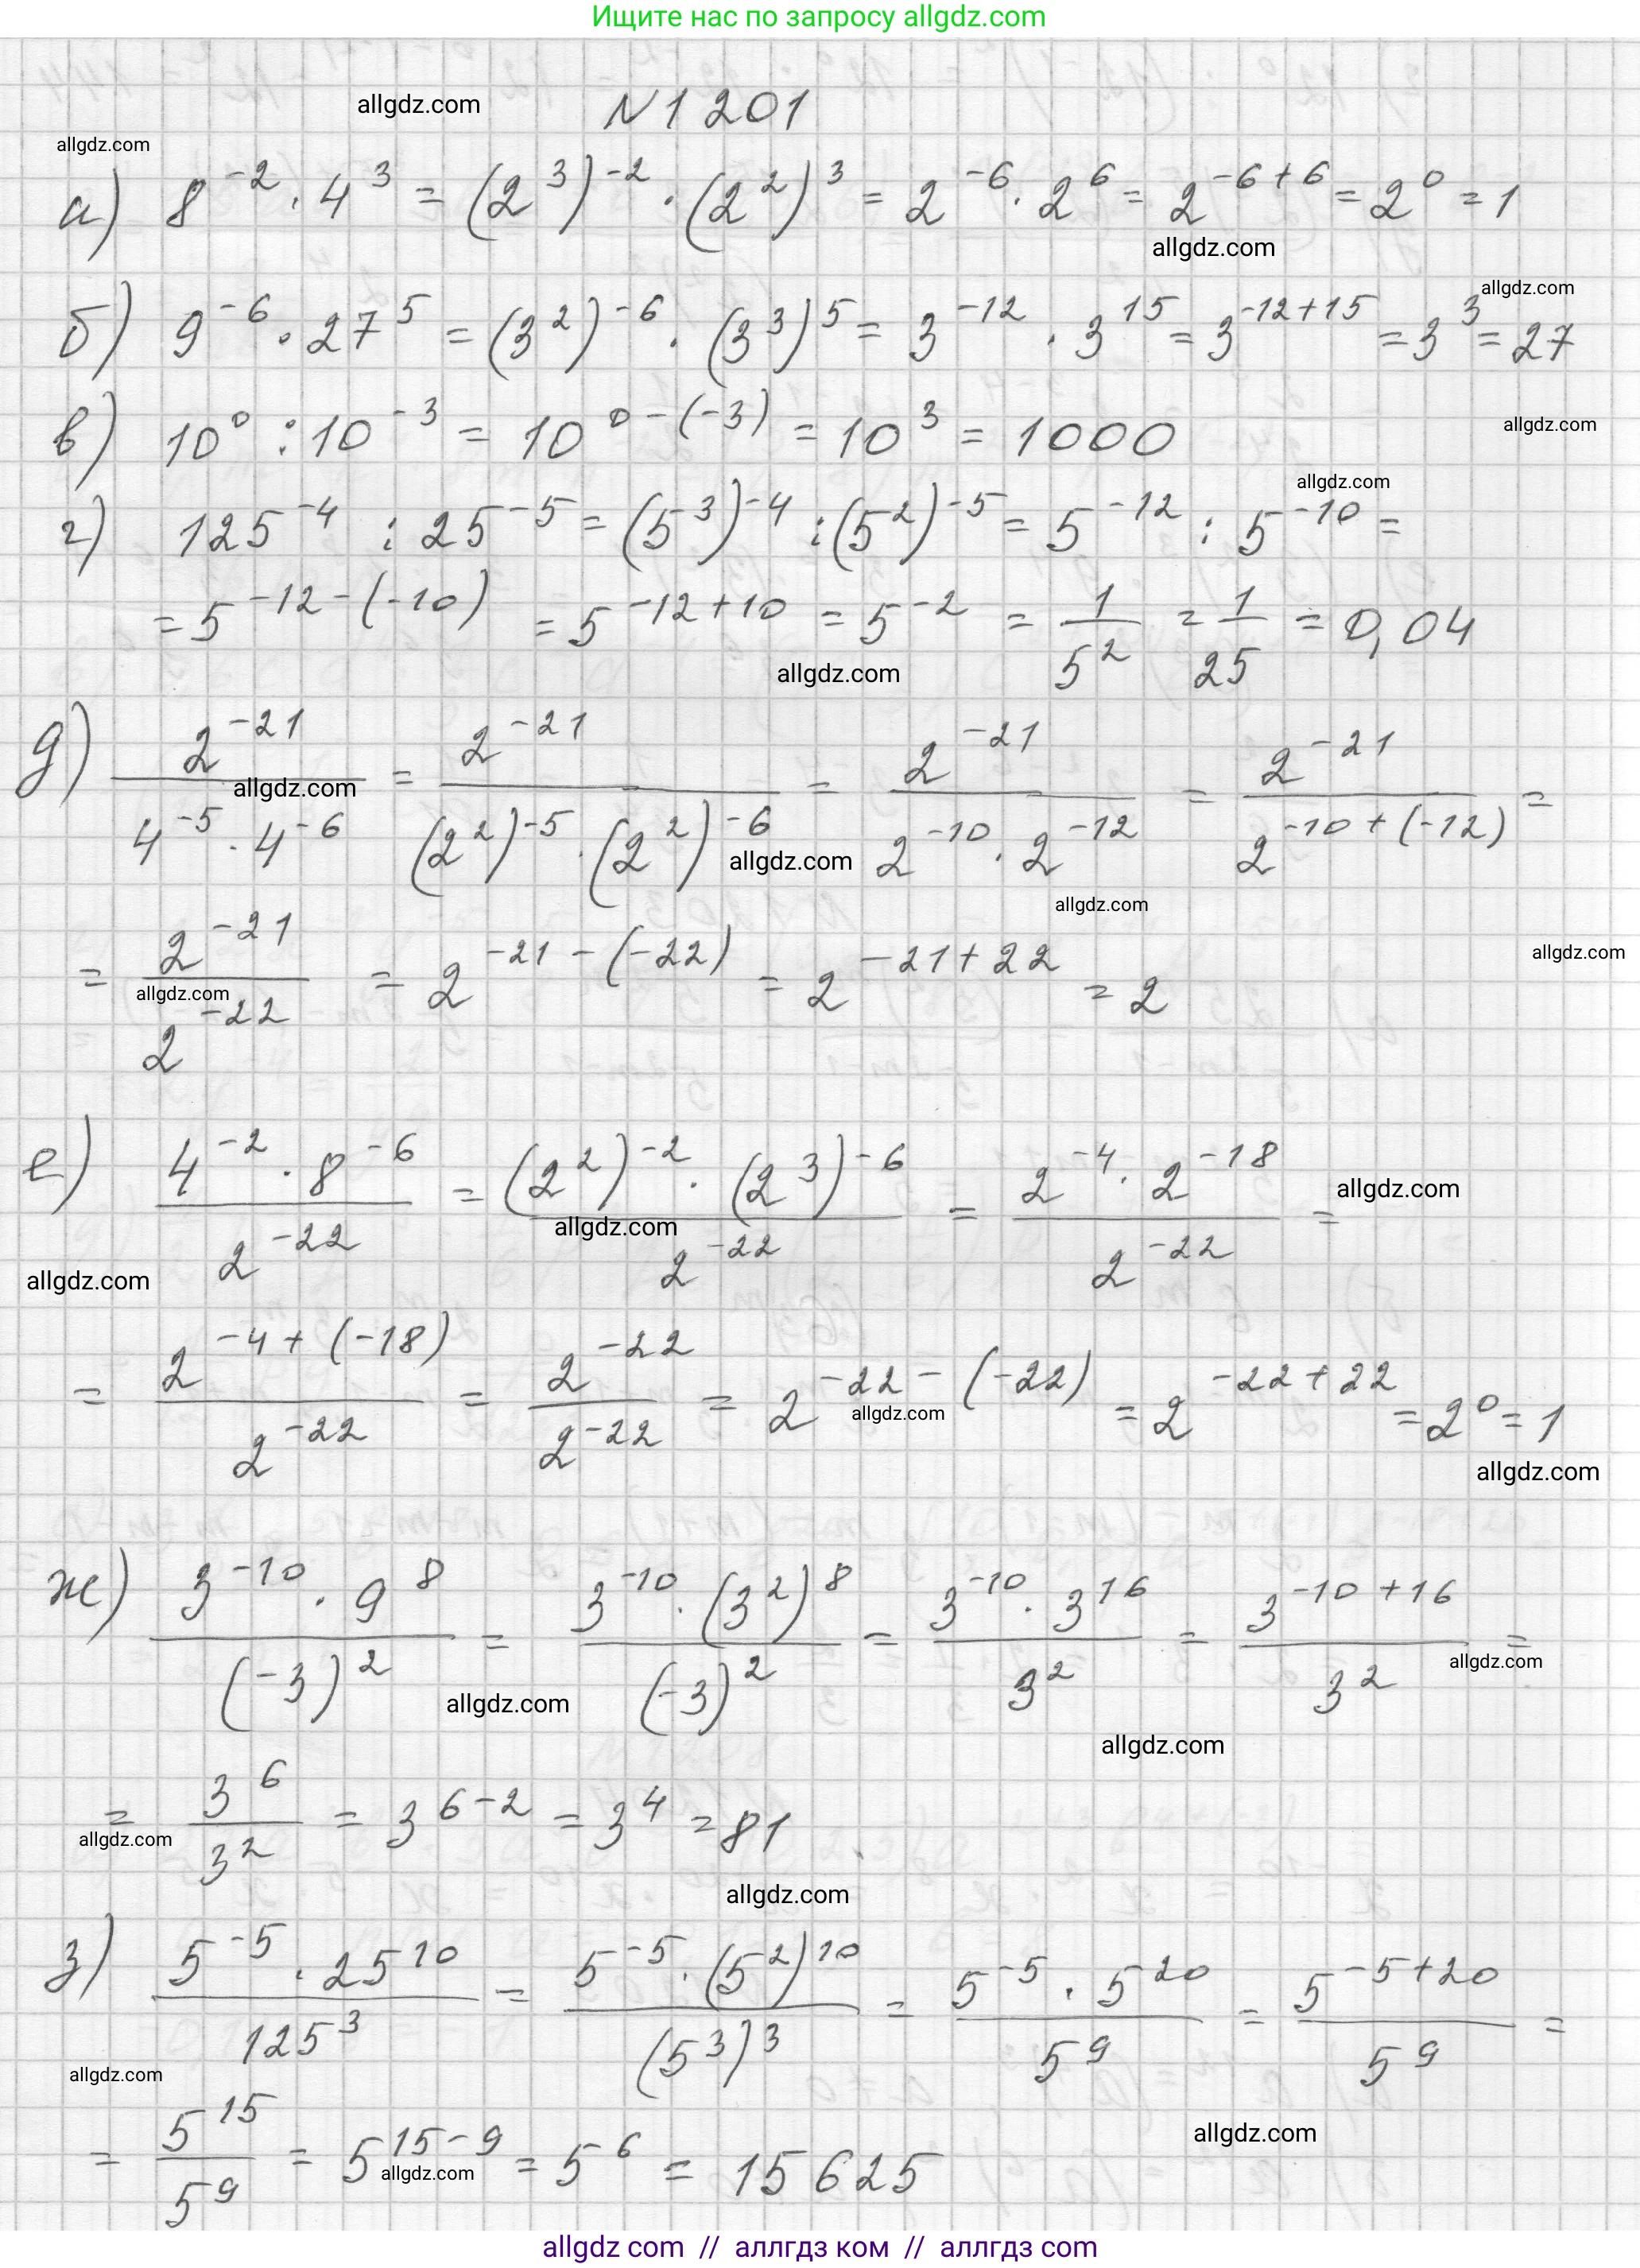 Ищите нас по запросу allgdz.com
allgdz.com
N 1 201
allgdz.com
а) 8^{-2} · 4^3 = (2^3)^{-2} · (2^2)^3 = 2^{-6} · 2^6 = 2^{-6+6} = 2^0 = 1
allgdz.com
allgdz.com
б) 9^{-6} · 27^5 = (3^2)^{-6} · (3^3)^5 = 3^{-12} · 3^{15} = 3^{-12+15} = 3^3 = 27
в) 10^0 : 10^{-3} = 10^{0-(-3)} = 10^3 = 1000
allgdz.com
allgdz.com
г) 125^{-4} : 25^{-5} = (5^3)^{-4} : (5^2)^{-5} = 5^{-12} : 5^{-10} =
= 5^{-12-(-10)} = 5^{-12+10} = 5^{-2} = \frac{1}{5^2} = \frac{1}{25} = 0,04
allgdz.com
д) \frac{2^{-21}}{4^{-5} · 4^{-6}} = \frac{2^{-21}}{(2^2)^{-5} · (2^2)^{-6}} = \frac{2^{-21}}{2^{-10} · 2^{-12}} = \frac{2^{-21}}{2^{-10+(-12)}} =
allgdz.com
allgdz.com
allgdz.com
allgdz.com
= \frac{2^{-21}}{2^{-22}} = 2^{-21-(-22)} = 2^{-21+22} = 2
allgdz.com
е) \frac{4^{-2} · 8^{-6}}{2^{-22}} = \frac{(2^2)^{-2} · (2^3)^{-6}}{2^{-22}} = \frac{2^{-4} · 2^{-18}}{2^{-22}} =
allgdz.com
allgdz.com
allgdz.com
= \frac{2^{-4+(-18)}}{2^{-22}} = \frac{2^{-22}}{2^{-22}} = 2^{-22-(-22)} = 2^{-22+22} = 2^0 = 1
allgdz.com
allgdz.com
ж) \frac{3^{-10} · 9^8}{(-3)^2} = \frac{3^{-10} · (3^2)^8}{(-3)^2} = \frac{3^{-10} · 3^{16}}{3^2} = \frac{3^{-10+16}}{3^2} =
allgdz.com
allgdz.com
allgdz.com
= \frac{3^6}{3^2} = 3^{6-2} = 3^4 = 81
allgdz.com
allgdz.com
з) \frac{5^{-5} · 25^{10}}{125^3} = \frac{5^{-5} · (5^2)^{10}}{(5^3)^3} = \frac{5^{-5} · 5^{20}}{5^9} = \frac{5^{-5+20}}{5^9} =
allgdz.com
allgdz.com
= \frac{5^{15}}{5^9} = 5^{15-9} = 5^6 = 15 625
allgdz.com
allgdz com // аллгдз ком // аллгдз com